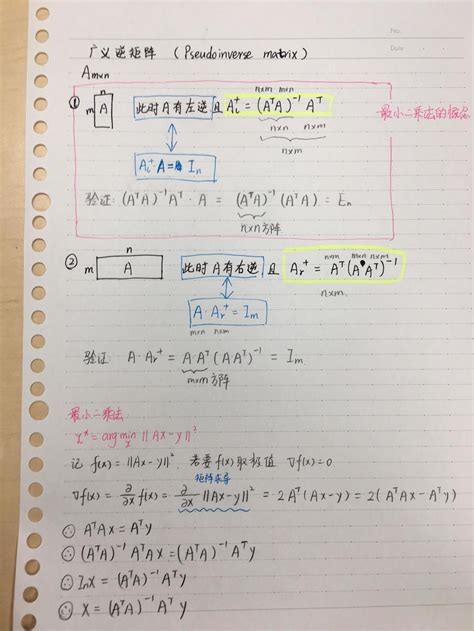 No.
Date
广义逆矩阵 (Pseudoinverse matrix)
Am×n
① n m A 此时A有左逆 且 Al⁺ = (AᵀA)⁻¹ Aᵀ
n×m m×n
n×n n×m
n×m
Al⁺·A = In
验证: (AᵀA)⁻¹Aᵀ·A = (AᵀA)⁻¹(AᵀA) = En
n×n方阵
② n m A 此时A有右逆 且 Ar⁺ = Aᵀ(AAᵀ)⁻¹
n×m m×n n×m
n×m
A·Ar⁺ = Im
m×n n×m
验证 A·Ar⁺ = A·Aᵀ(AAᵀ)⁻¹ = Im
m×m方阵
最小二乘法
x* = argmin ||Ax-y||²
x
记 f(x) = ||Ax-y||², 若要f(x)取极值 ∇f(x)=0
矩阵求导
∇f(x) = ∂/∂x f(x) = ∂/∂x ||Ax-y||² = 2Aᵀ(Ax-y) = 2(AᵀAx-Aᵀy)
AᵀAx = Aᵀy
(AᵀA)⁻¹AᵀAx = (AᵀA)⁻¹Aᵀy
Inx = (AᵀA)⁻¹Aᵀy
x = (AᵀA)⁻¹Aᵀy